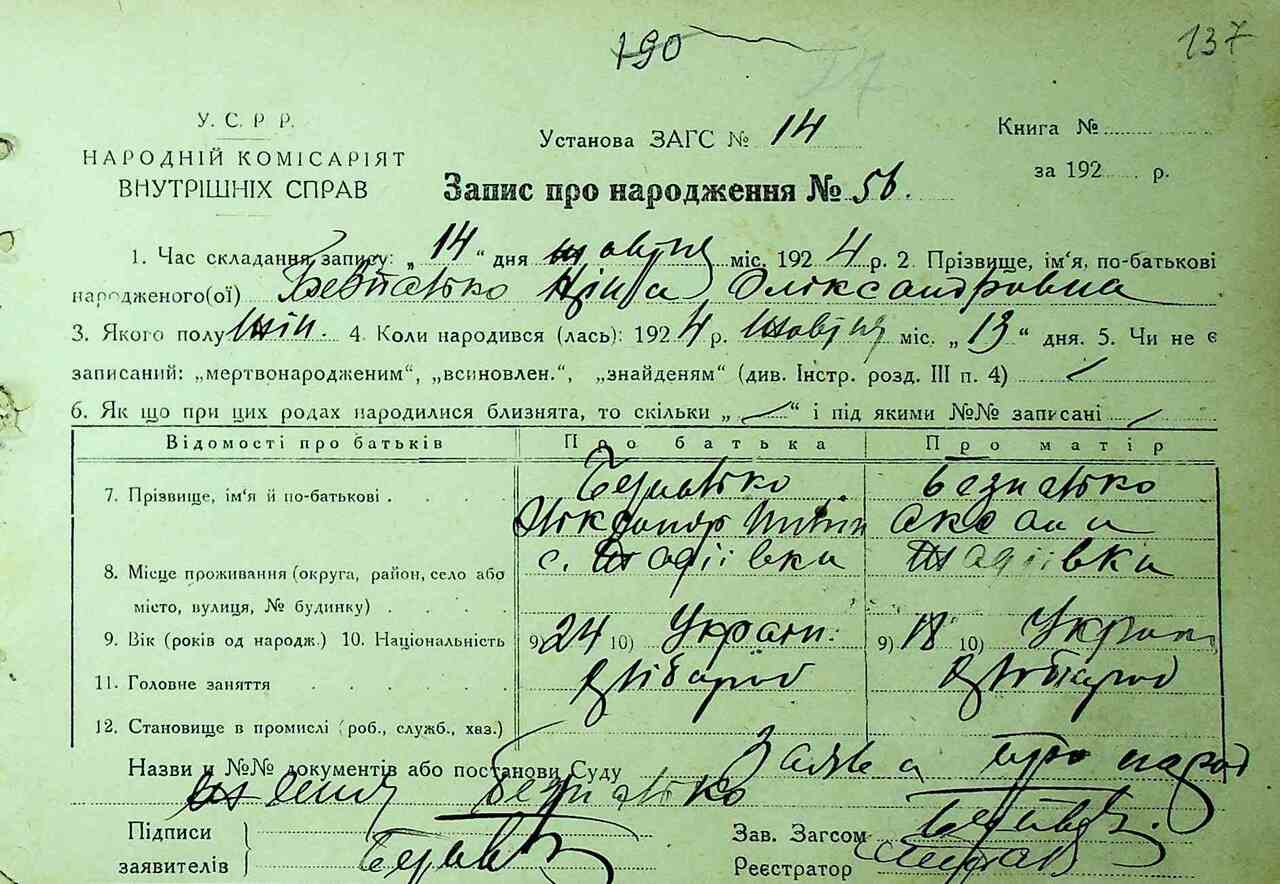 190
137
27
У. С. Р. Р.
НАРОДНІЙ КОМІСАРІЯТ
ВНУТРІШНІХ СПРАВ
Установа ЗАГС № 14
Книга №
за 192 р.
Запис про народження № 56.
1. Час складання запису: „ 14 “ дня жовтня міс. 192 4 р. 2. Прізвище, ім‘я, по-батькові
народженого(ої) Олександровна
3. Якого полу жін. 4. Коли народився (лась): 192 4 р. жовтня міс. „ 13 “ дня. 5. Чи не є
записаний: „мертвонародженим“, „всиновлен.“, „знайденям“ (див. Інстр. розд. III п. 4) —
6. Як що при цих родах народилися близнята, то скільки „ — “ і під якими №№ записані —
Відомості про батьків Про батька Про матір
7. Прізвище, ім‘я й по-батькові
8. Місце проживання (округа, район, село або
місто, вулиця, № будинку)
9. Вік (років од народж.) 10. Національність 9) 24 10) Украин. 9) 18 10) Украин
11. Головне заняття хлібороб хлібороб
12. Становище в промислі (роб., служб., хаз.)
Назви и №№ документів або постанови Суду Заява про народ
ження
Підписи
заявителів
Зав. Загсом
Реєстратор